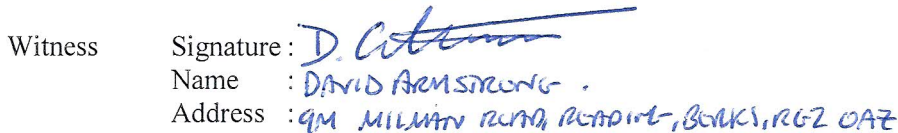 Witness Signature : D.
Name : DAVID ARMSTRONG .
Address : 9M MILMAN ROAD, READING, BERKS, RG2 0AZ